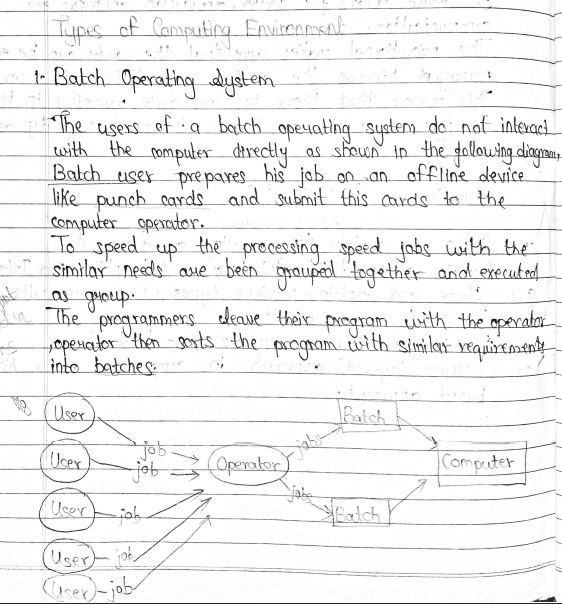 Types of Computing Environment
1- Batch Operating System
The users of a batch operating system do not interact
with the computer directly as shown in the following diagram,
Batch user prepares his job on an offline device
like punch cards and submit this cards to the
computer operator.
To speed up the processing speed jobs with the
similar needs are been grouped together and executed
as group.
The programmers leave their program with the operator
, operator then sorts the program with similar requirements
into batches.
User
job
User
job
User
job
User
job
User
job
Operator
jobs
Batch
jobs
Batch
Computer